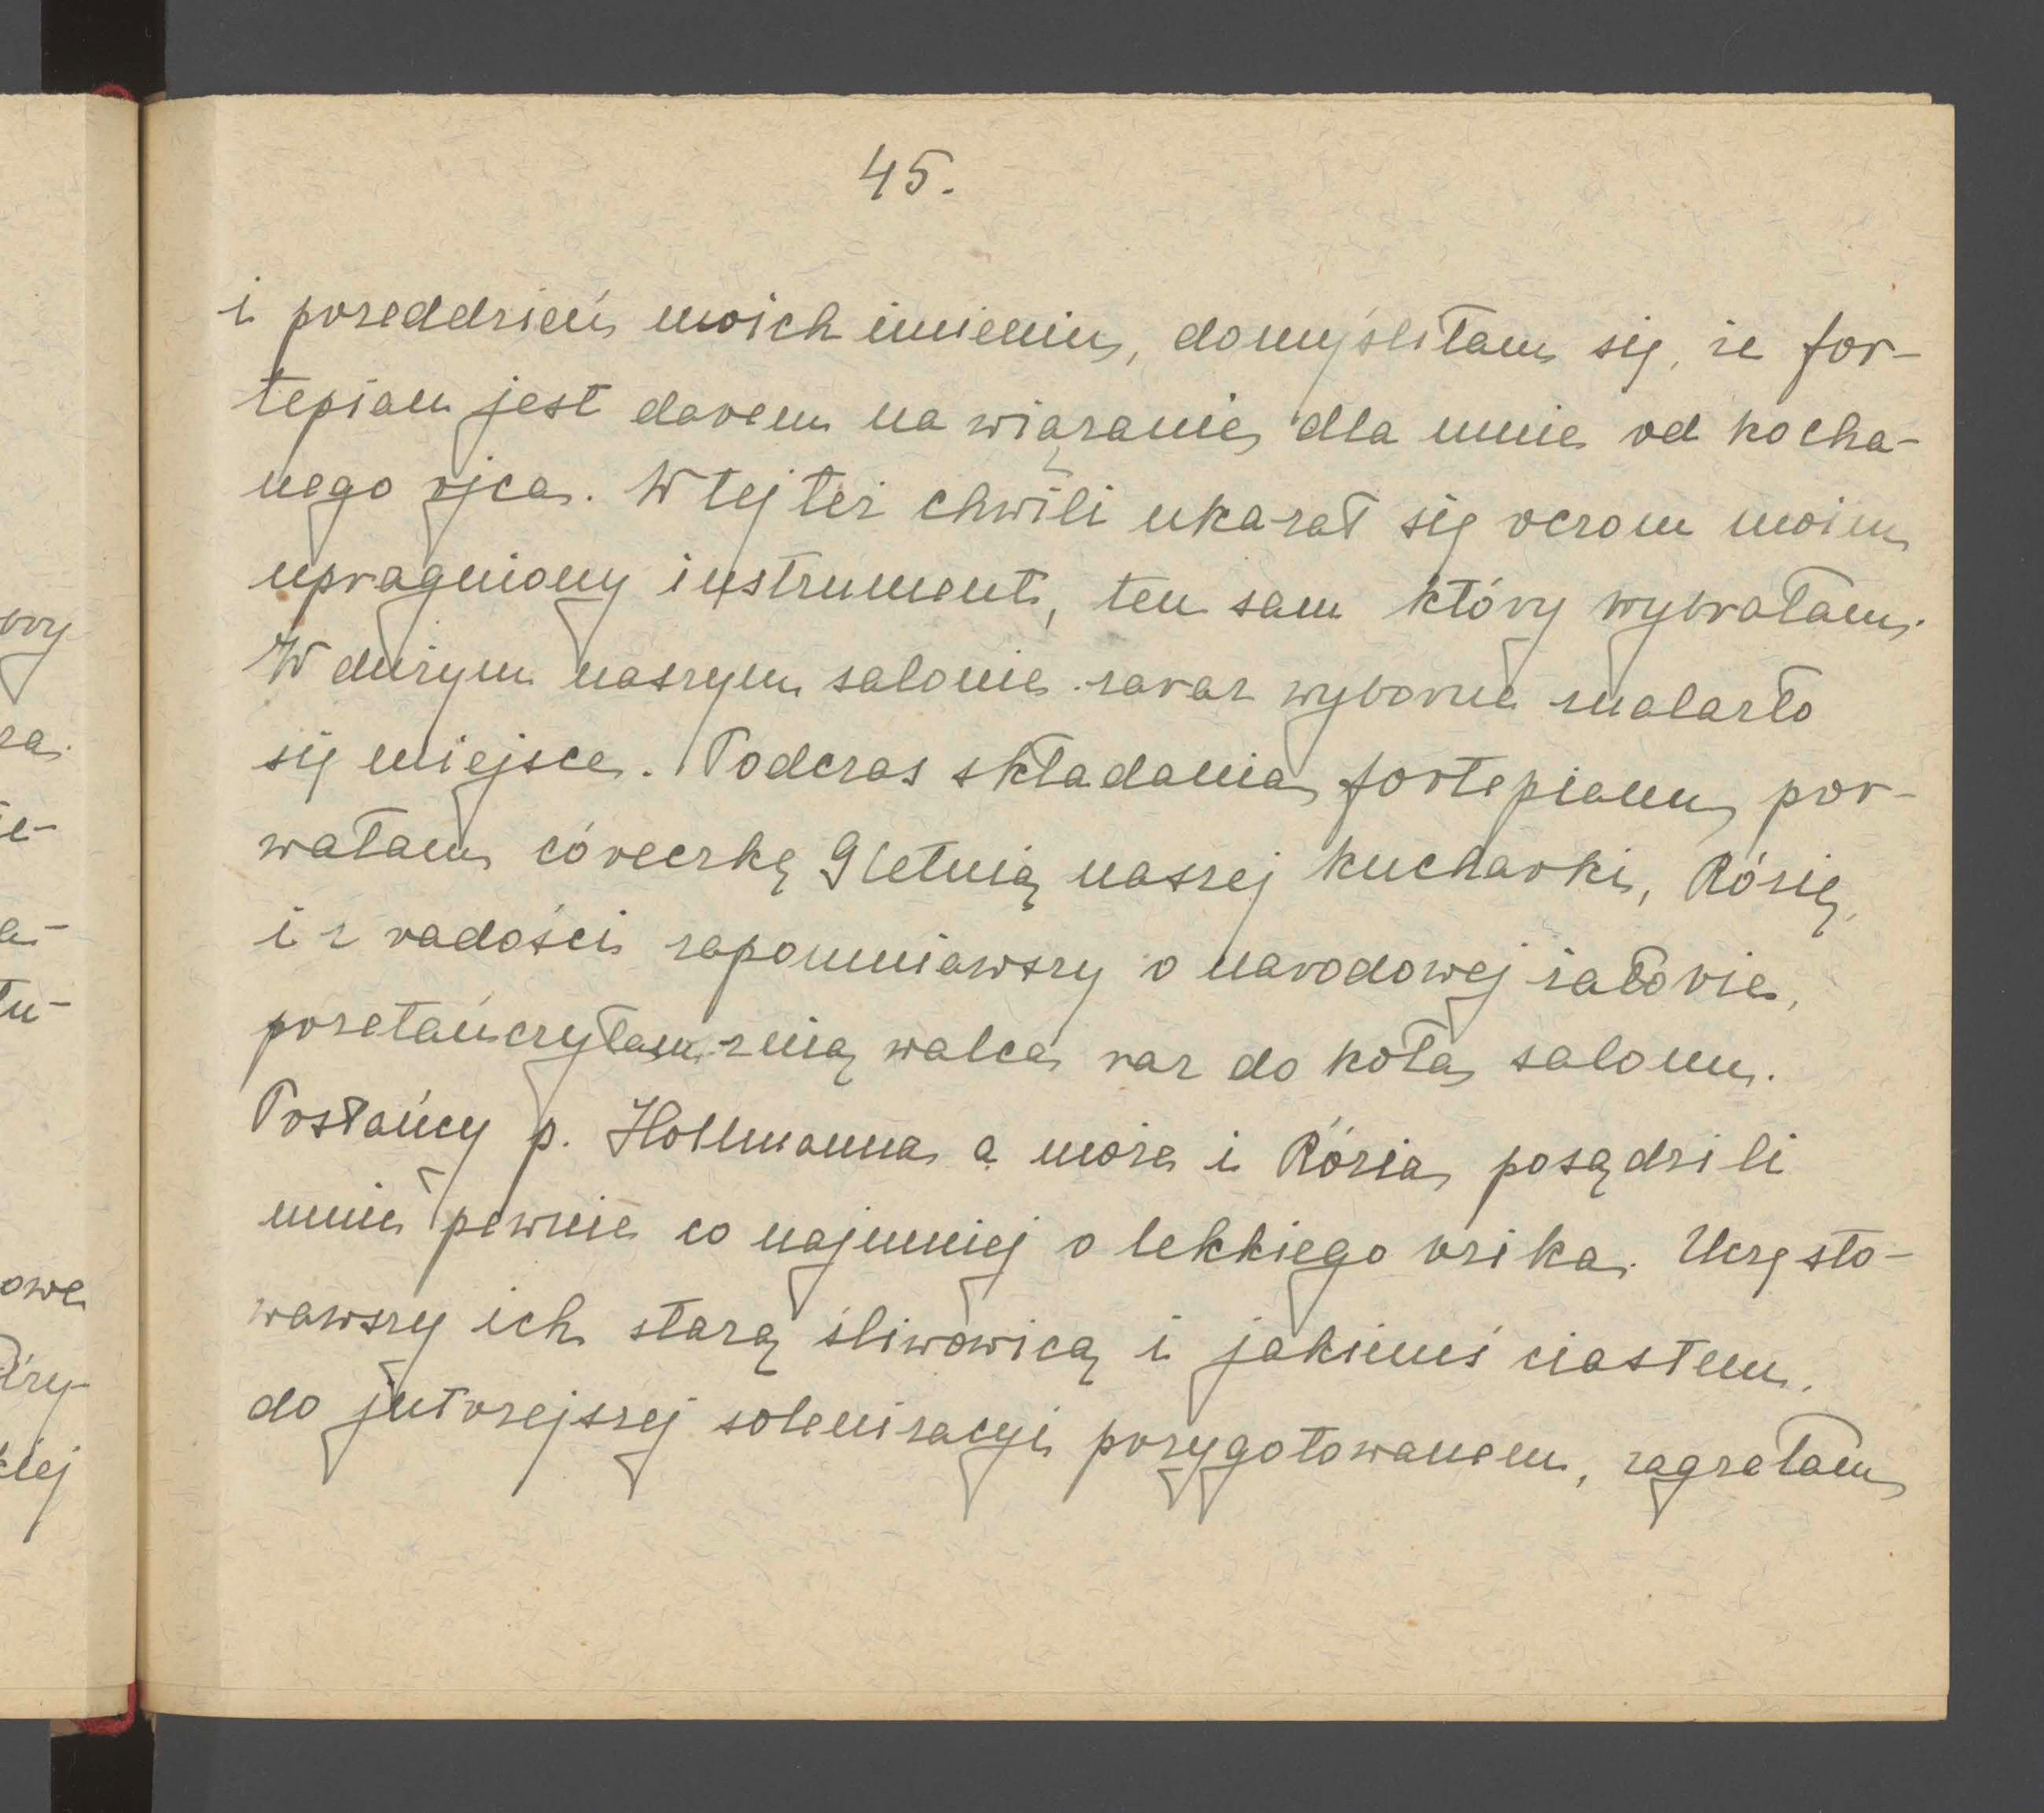 45.
i przeddzień moich imienin, domyśliłam się, że for-
tepian jest darem na wiązanie dla mnie od kocha-
nego ojca. W tej też chwili ukazał się oczom moim
upragniony instrument, ten sam który wybrałam.
W dużym naszym salonie zaraz wyborne znalazło
się miejsce. Podczas składania fortepianu por-
wałam córeczkę 9letnią naszej kucharki, Rózię,
i z radości zapomniawszy o narodowej żałobie,
przetańczyłam z nią walca raz do koła salonu.
Posłańcy p. Hollmanna a może i Rózia posądzili
mnie pewnie co najmniej o lekkiego bzika. Uczęsto-
wawszy ich starą śliwowicą i jakimś ciastem,
do jutrzejszej solenizacyi przygotowanem, zagrałam